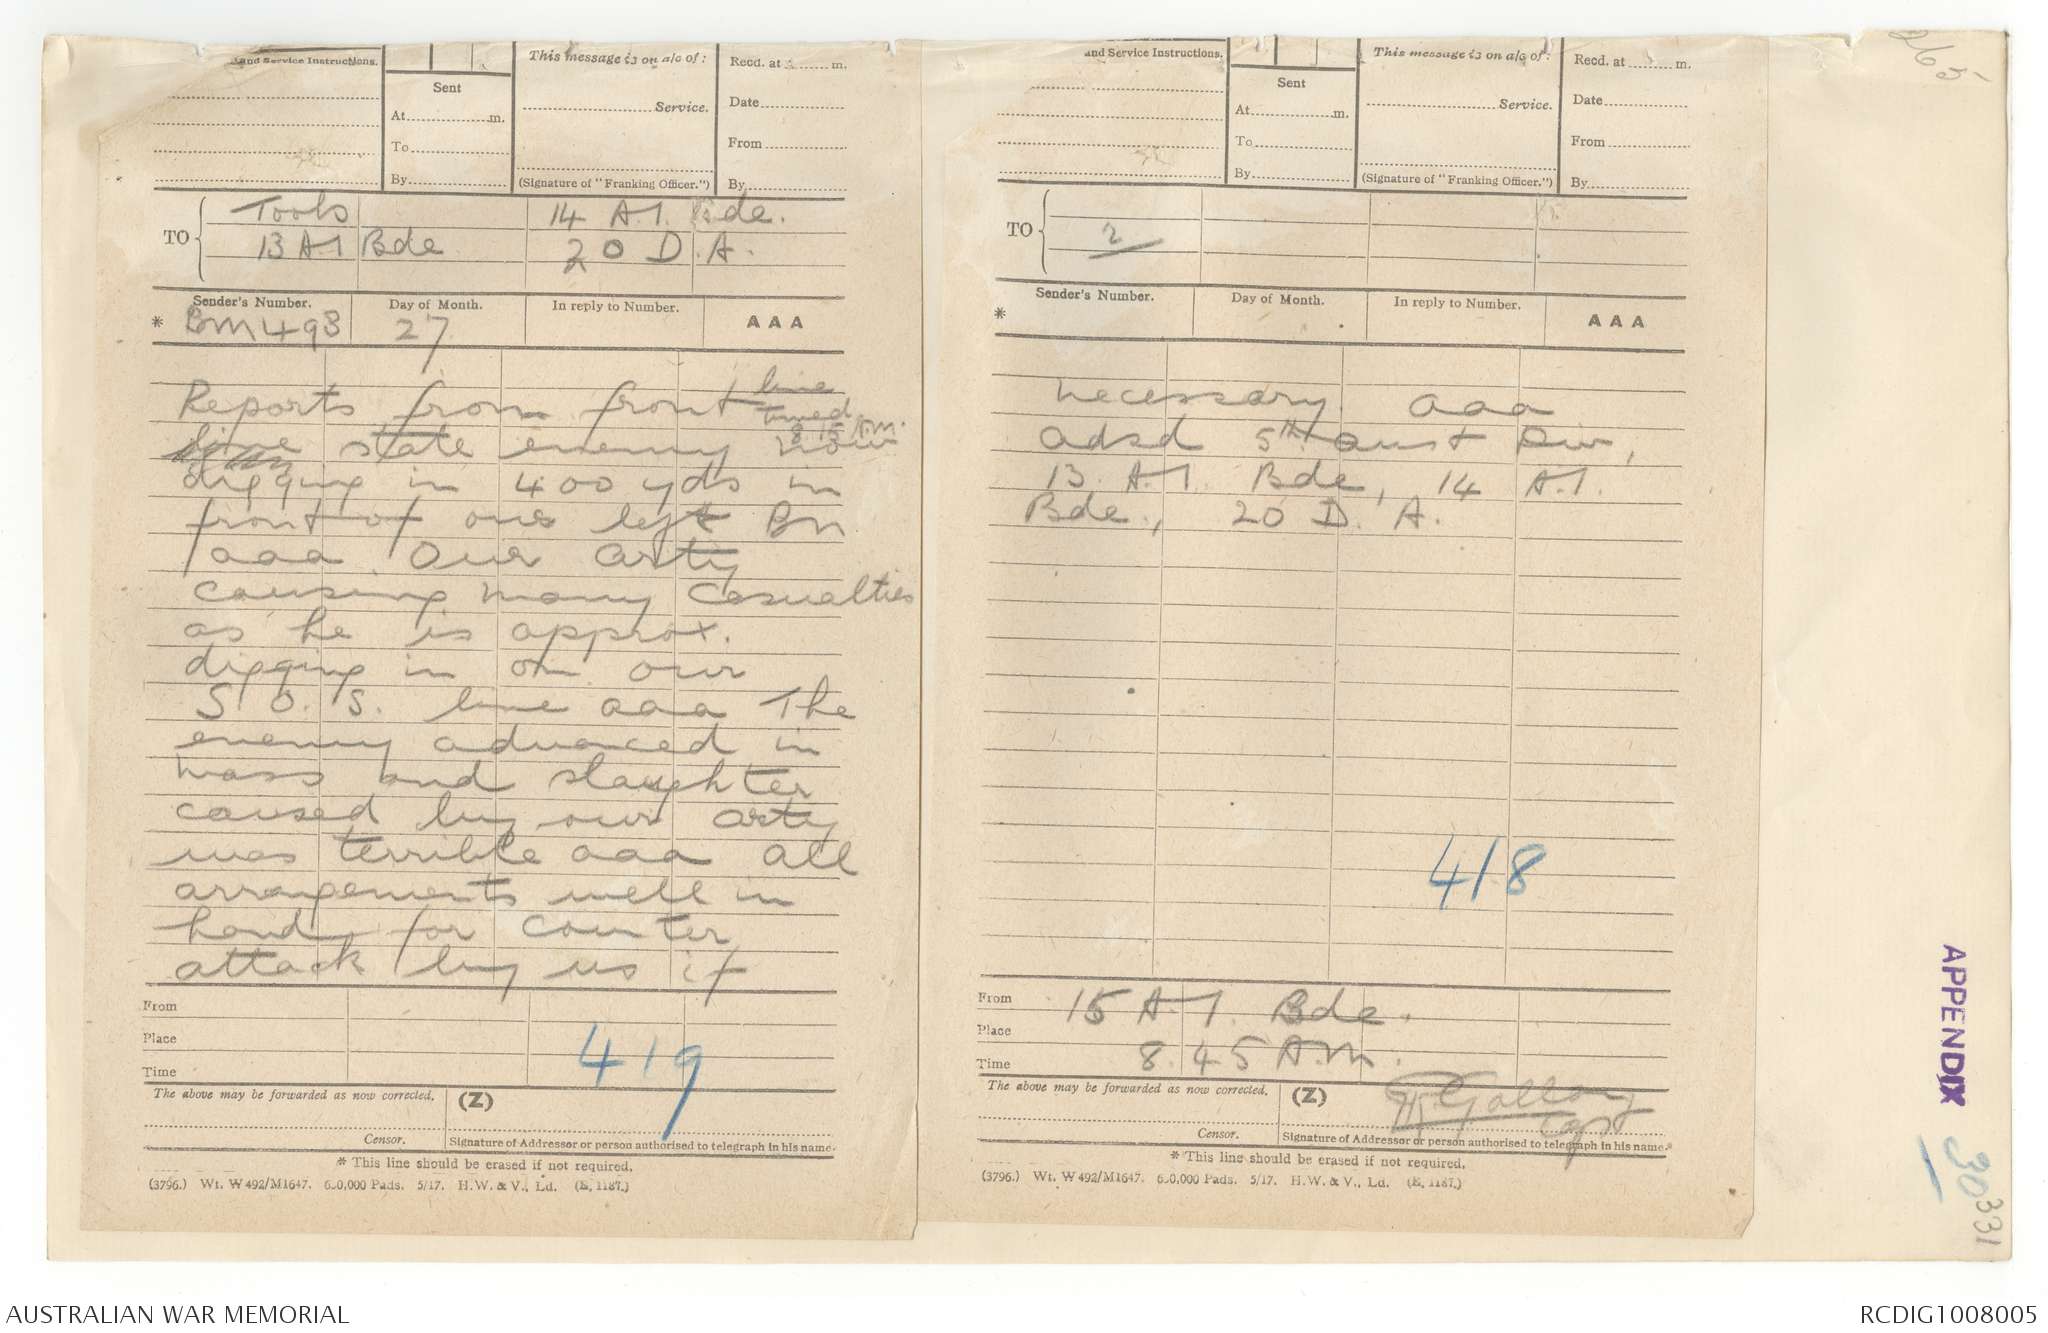 and Service Instructions.
Sent
At m.
To
By
This message is on a/c of:
Service.
(Signature of "Franking Officer.")
Recd. at m.
Date
From
By
TO
Tools 14 A.I. Bde.
13 A I Bde 20 D.A.
Sender's Number. Day of Month. In reply to Number. AAA
* BM498 27
Reports from front line
timed
8.15 A.M.
state enemy now
digging in 400 yds in
front of our left Bn
aaa Our arty
causing many casualties
as he is approx.
digging in on our
S.O.S. line aaa The
enemy advanced in
mass and slaughter
caused by our arty
was terrible aaa all
arrangements well in
hand for counter
attack by us if
From
Place
Time
419
The above may be forwarded as now corrected. (Z)
Censor. Signature of Addressor or person authorised to telegraph in his name.
* This line should be erased if not required.
(3796.) Wt. W492/M1647. 600,000 Pads. 5/17. H.W. & V., Ld. (E. 1187.)
and Service Instructions.
Sent
At m.
To
By
This message is on a/c of:
Service.
(Signature of "Franking Officer.")
Recd. at m.
Date
From
By
TO
2
Sender's Number. Day of Month. In reply to Number. AAA
*
necessary aaa
adsd 5th aust Div,
13 A.I. Bde, 14 A.I.
Bde., 20 D.A.
418
From 15 A.I. Bde.
Place
Time 8.45 A.M.
The above may be forwarded as now corrected. (Z)
Capt
Censor. Signature of Addressor or person authorised to telegraph in his name.
* This line should be erased if not required.
(3796.) Wt. W492/M1647. 600,000 Pads. 5/17. H.W. & V., Ld. (E. 1187.)
265
APPENDIX
30
331
AUSTRALIAN WAR MEMORIAL
RCDIG1008005